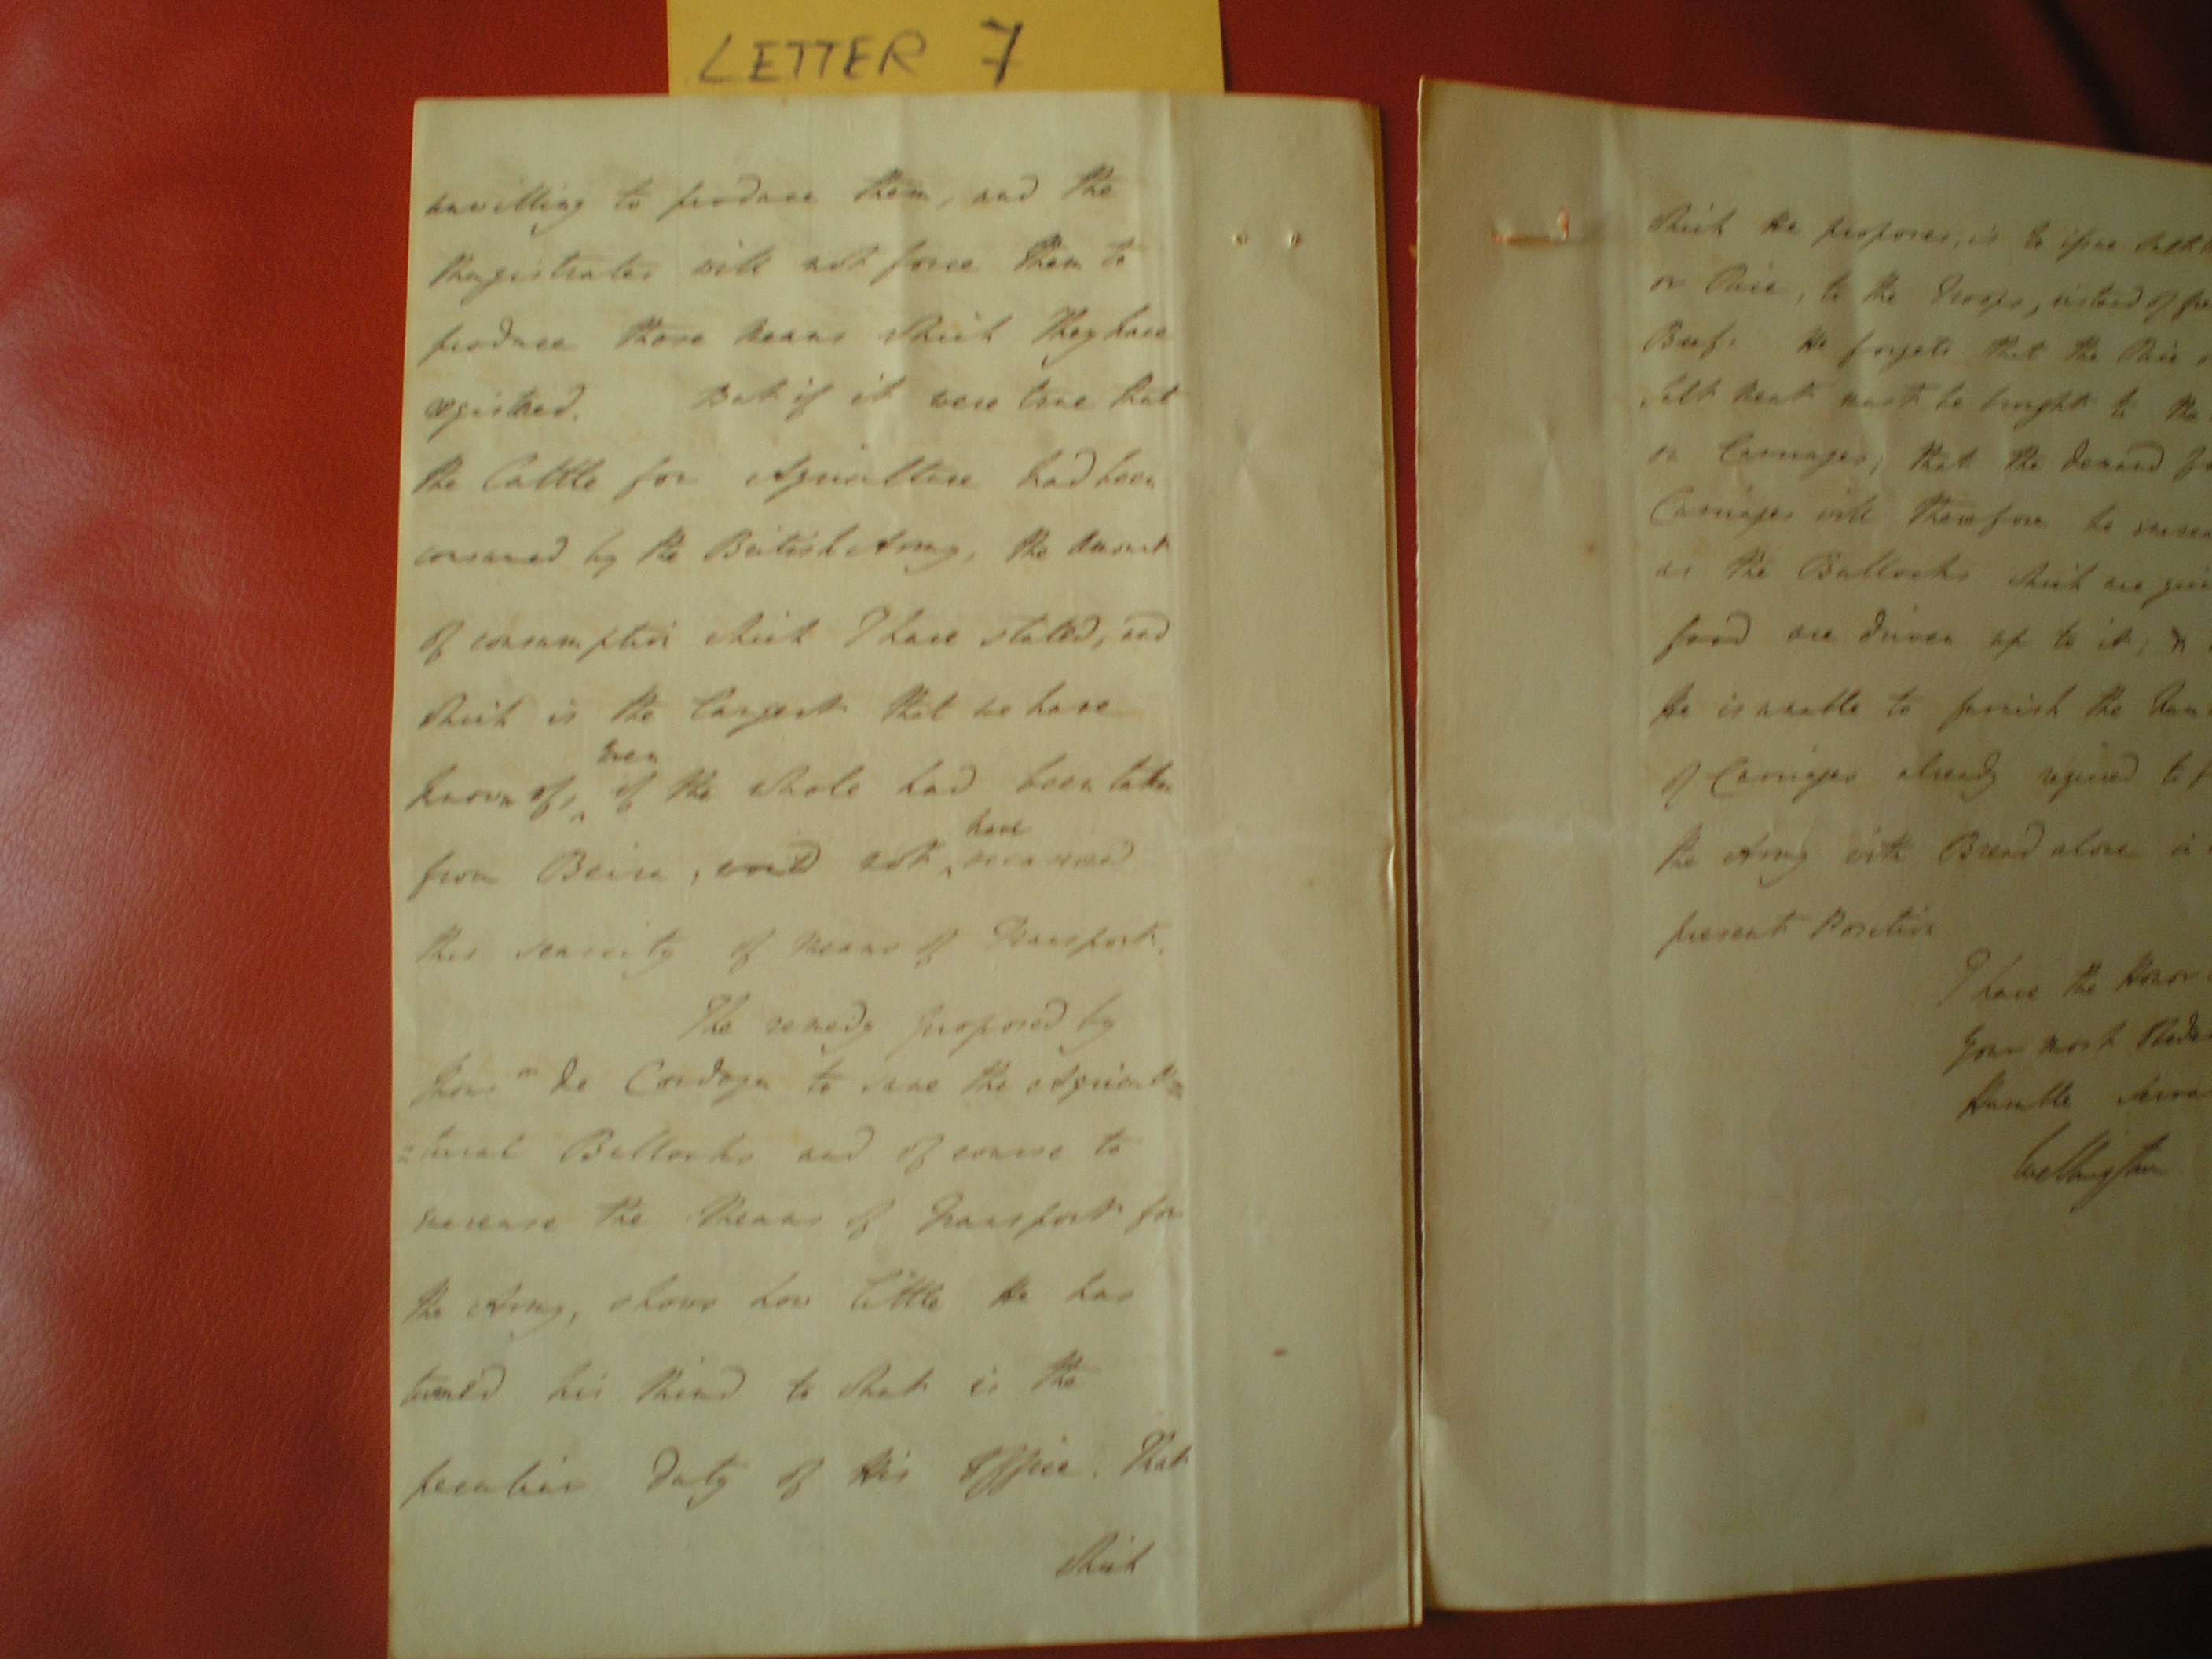 LETTER 7
unwilling to produce them, and the
Magistrates will not force them to
produce those Means which They have
registered. But if it were true that
the Cattle for Agriculture had been
consumed by the British Army, the Amount
of consumption which I have stated, and
which is the largest that we have
known of, even if the whole had been taken
from Beira, would not have occasioned
this scarcity of Means of Transport.
The remedy proposed by
de to save the Agricul=
=tural Bullocks and of course to
increase the Means of Transport for
the Army, shows how little He has
turned his Mind to what is the
peculiar Duty of His Office. That
which
which He proposes, is to issue Salt
or Rice, to the Troops, instead of
Beef. He forgets that the Rice
Salt Meat must be brought to the
on Carriages; that the demand
Carriages will therefore be
as the Bullocks which are
food are driven up to it;
He is unable to furnish the
of Carriages already required to
the Army with Bread alone in
present Position
I have the Honor
Your most
Humble
Wellington